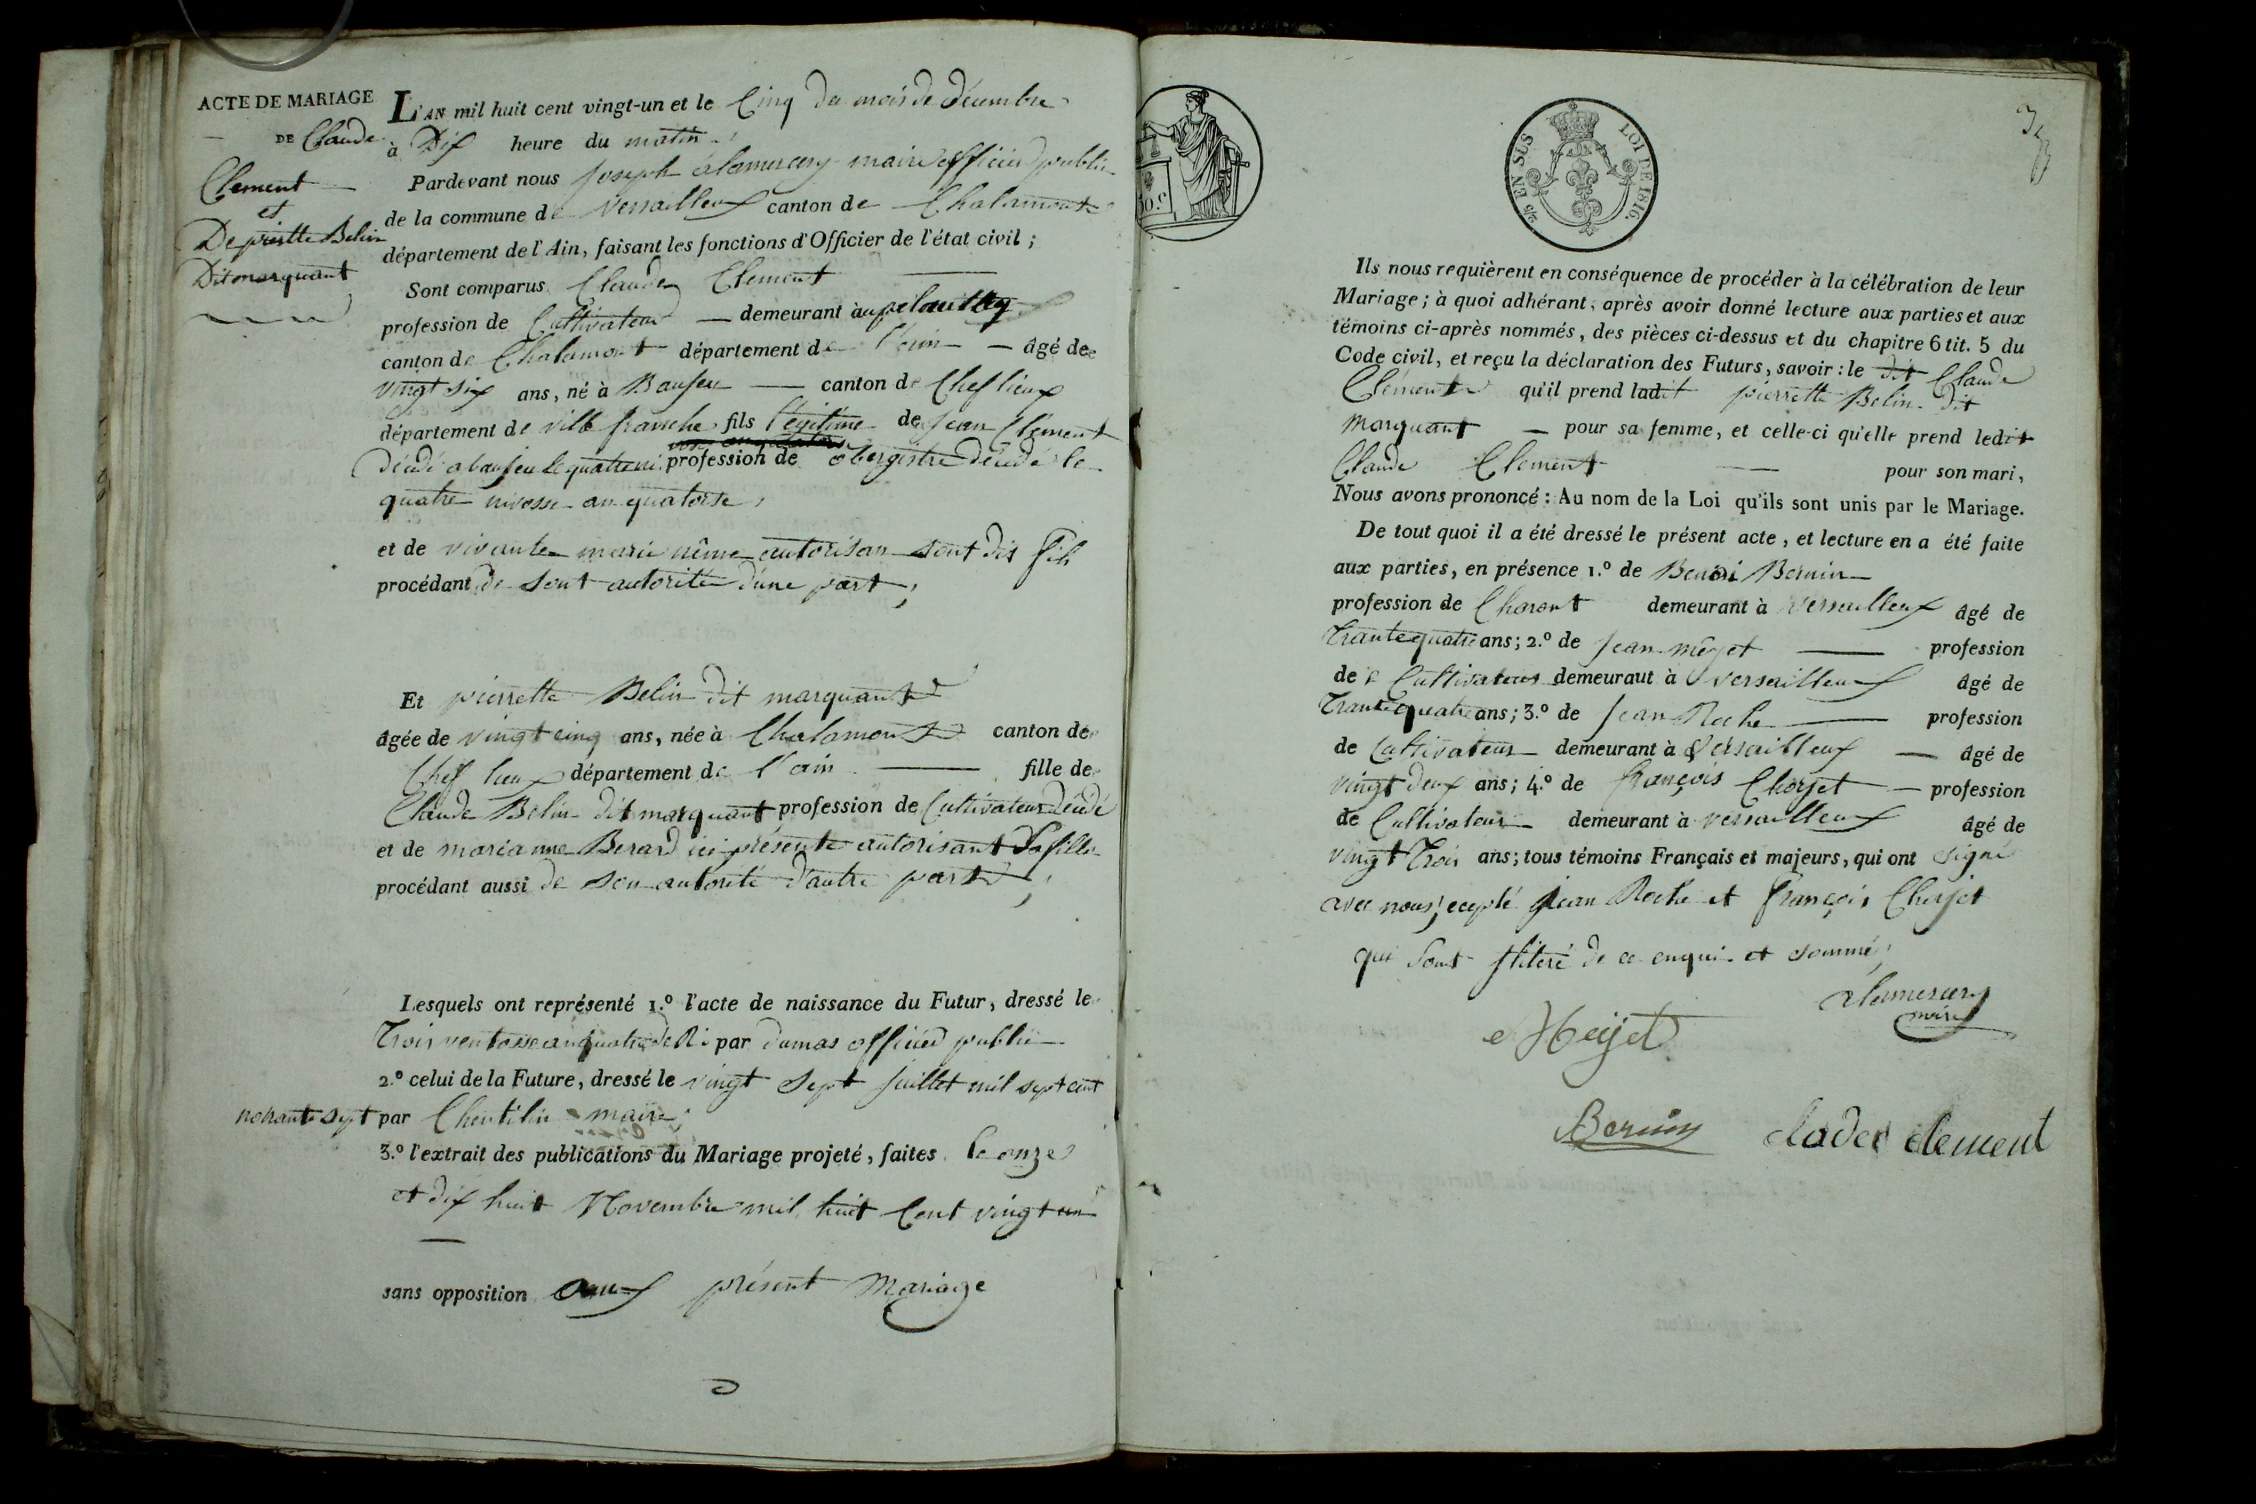 ACTE DE MARIAGE
DE Claude
Clement
et
De pierrtte Belin
Dit marquant
L'AN mil huit cent vingt-un et le Cinq du mois de décembre
à Dix heure du matin
Pardevant nous joseph alamercery maire officier public
de la commune de versailleux canton de Chalamont
département de l'Ain, faisant les fonctions d'Officier de l'état civil ;
Sont comparus Claude Clement
profession de Cultivateur demeurant au
canton de Chalamont département de l'ain âgé de
vingt six ans, né à Baujeu canton de Chef lieux
département de ville franche fils légitime de jean Clement
décédé a baujeu le quatre ni profession de obergistre décédé le
quatre nivosse an quatorse
et de vivante marie même autorisan sont dit fils
procédant de sont autorité d'une part ;
Et pierrette Belin dit marquant
âgée de vingt cinq ans, née à Chalamont canton de
Chef lieux département de l'ain fille de
Claude Belin dit marquant profession de Cultivateur décédé
et de marianne Berard ici présente autorisant sa fille
procédant aussi de son autorité d'autre part ;
Lesquels ont représenté 1.º l'acte de naissance du Futur, dressé le
Trois ventosse an quatre de R. par dumas officier public
2.º celui de la Future, dressé le vingt sept juillet mil sept cent
nonante sept par maire
3.º l'extrait des publications du Mariage projeté, faites le onze
et dix huit Novembre mil huit Cent vingt un
sans opposition aux présent Mariage
2/5 EN SUS
LOI DE 1816.
Ils nous requièrent en conséquence de procéder à la célébration de leur
Mariage ; à quoi adhérant, après avoir donné lecture aux parties et aux
témoins ci-après nommés, des pièces ci-dessus et du chapitre 6 tit. 5 du
Code civil, et reçu la déclaration des Futurs, savoir : le dit Claude
Clément qu'il prend ladit pierrette Belin dit
marquant pour sa femme, et celle-ci qu'elle prend ledit
Claude Clement pour son mari,
Nous avons prononcé : Au nom de la Loi qu'ils sont unis par le Mariage.
De tout quoi il a été dressé le présent acte, et lecture en a été faite
aux parties, en présence 1.º de Benoi Bernin
profession de Charont demeurant à versailleux âgé de
Trante quatre ans ; 2.º de jean méjet profession
de Cultivateur demeurant à versailleux âgé de
Trante quatre ans ; 3.º de jean Roche profession
de Cultivateur demeurant à versailleux âgé de
vingt deux ans ; 4.º de françois Chorjet profession
de Cultivateur demeurant à versailleux âgé de
vingt Trois ans ; tous témoins Français et majeurs, qui ont signé
avec nous, ecepté jean Roche et françois Chorjet
qui sont de ce enqui et sommé,
alamercery
maire
Meijet
Bernin clader clement